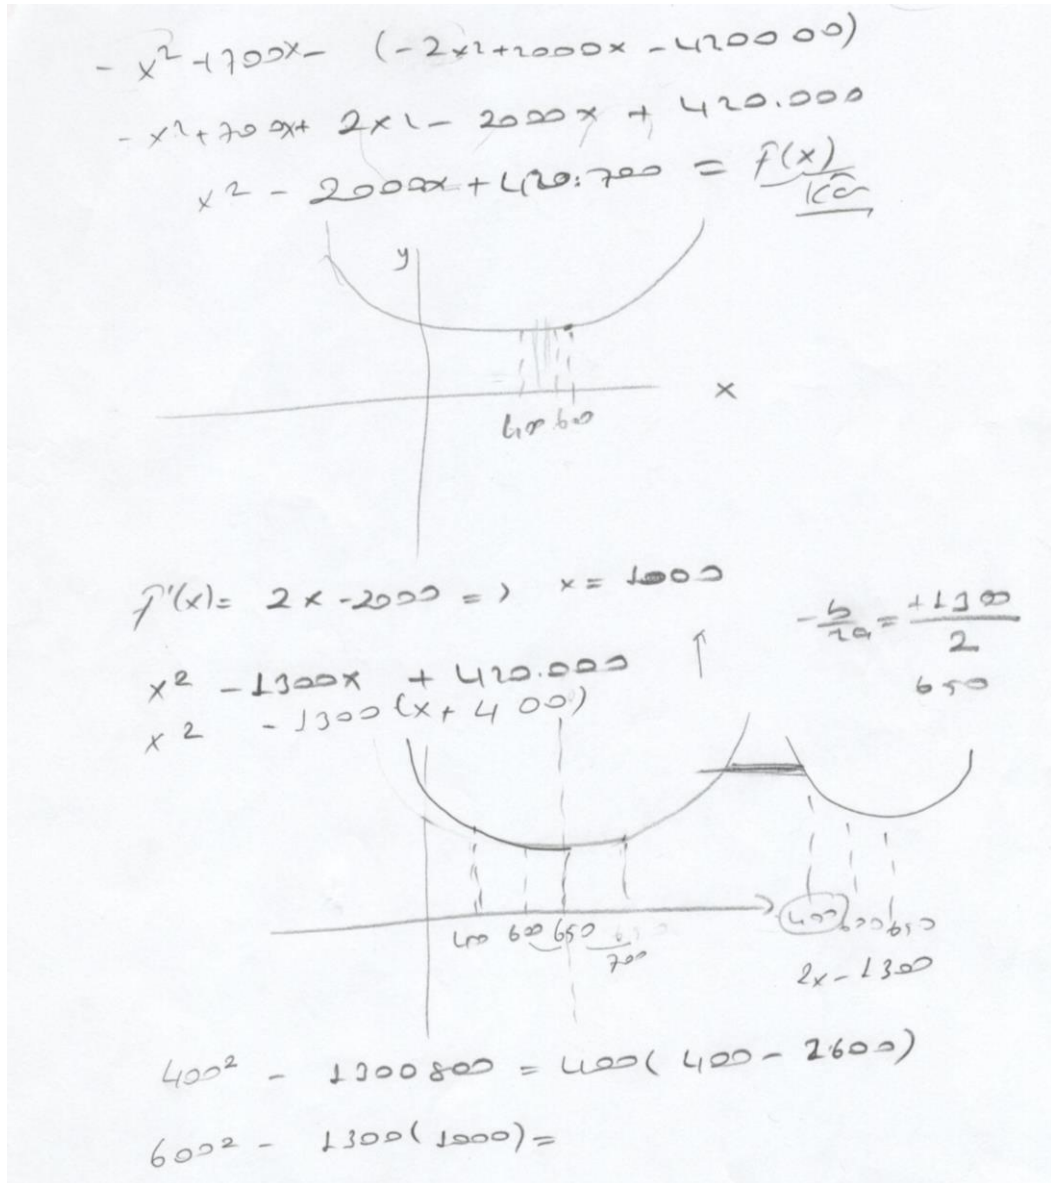 - x² + 700x - (-2x² + 2000x - 420000)
- x² + 700x + 2x² - 2000x + 420.000
x² - 2000x + 420.700 = f(x)
kâr
y
x
400 600
f'(x) = 2x - 2000 => x = 1000
-b/2a = +1300/2
650
x² - 1300x + 420.000
x² - 1300 (x + 400)
400 600 650
700
400 600 650
2x - 1300
400² - 1300800 = 400( 400 - 2600)
600² - 1300( 1000) =